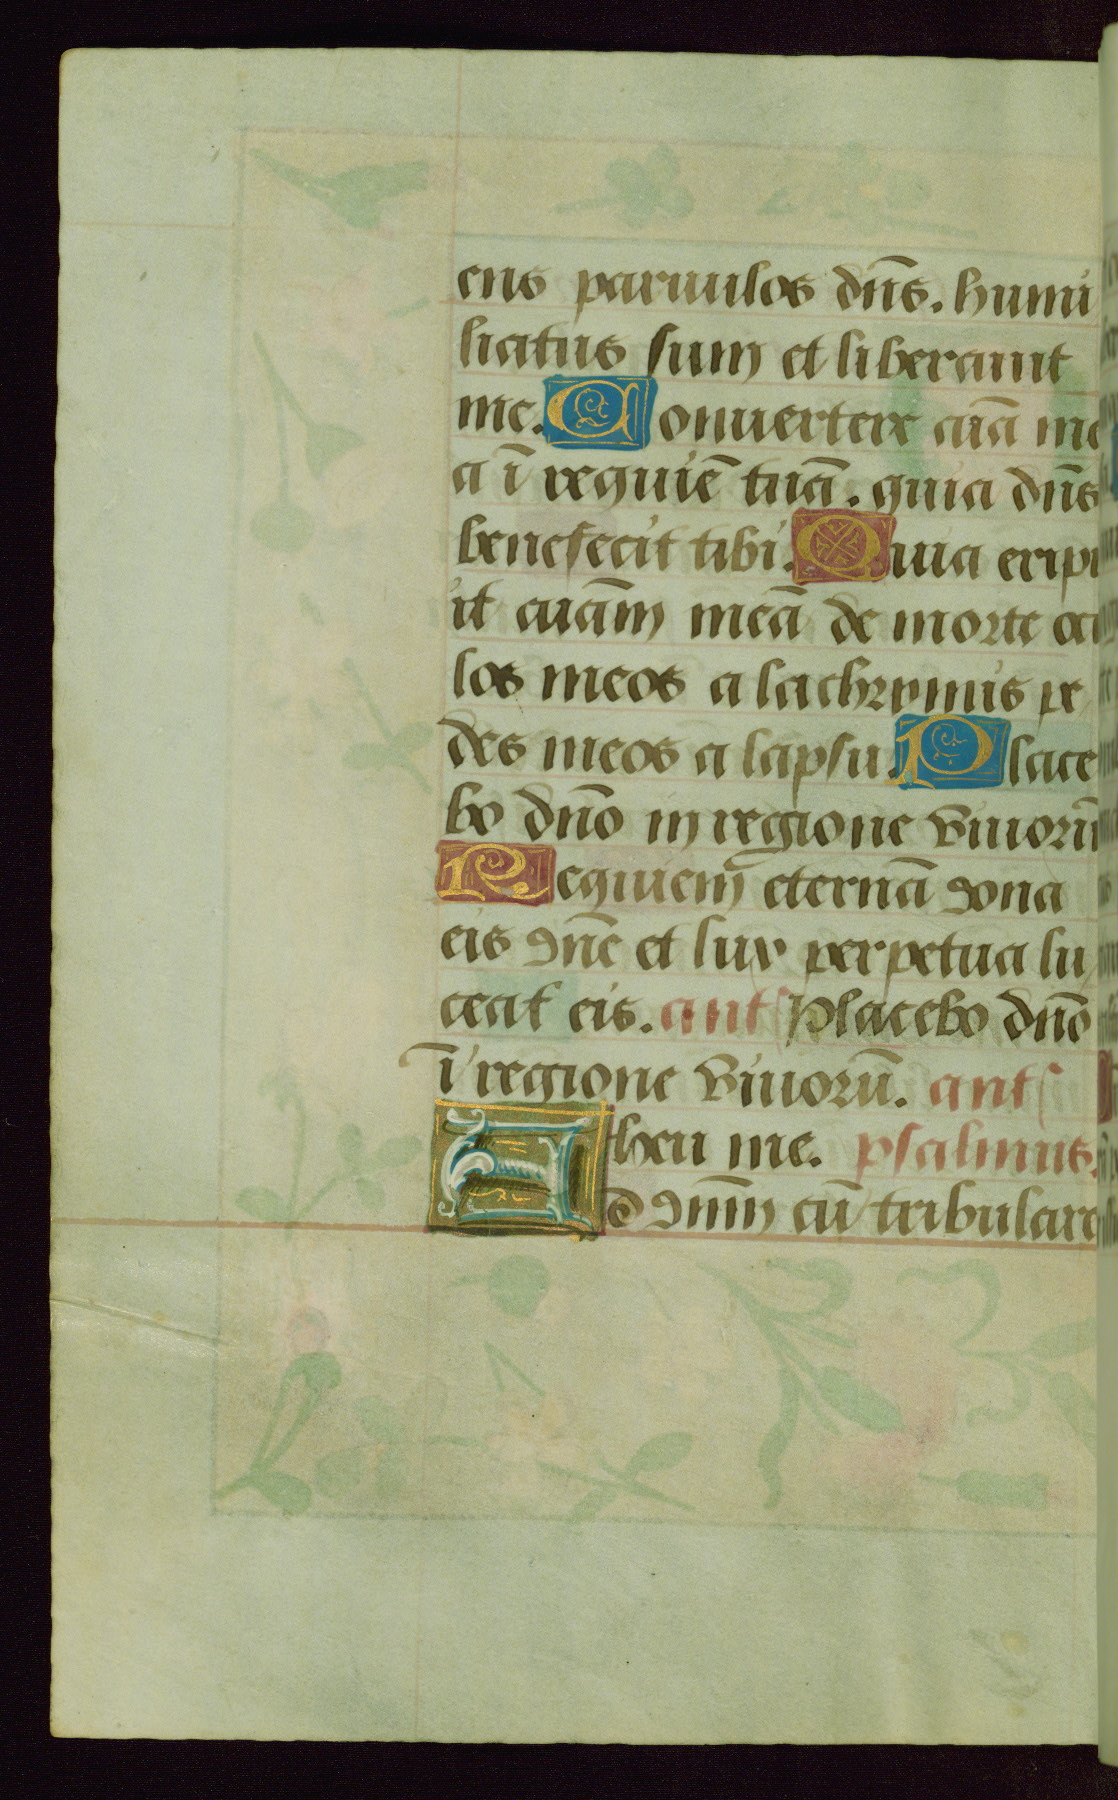 ens paruulos dn̄s. humi
liatus sum et liberauit
me. Conuertere aīa me
a ī requiē tuā. quia dn̄s
benefecit tibi. Quia eripu
it aīam meā de morte oc
los meos a lachrymis pe
des meos a lapsu. Place
bo dn̄o in regione viuorū
Requiem eternā dona
eis dn̄e et lux perpetua lu
ceat eis. ant Placebo dn̄o
ī regione viuorū. ant
Aheu me. psalmus.
D dn̄m cū tribulare